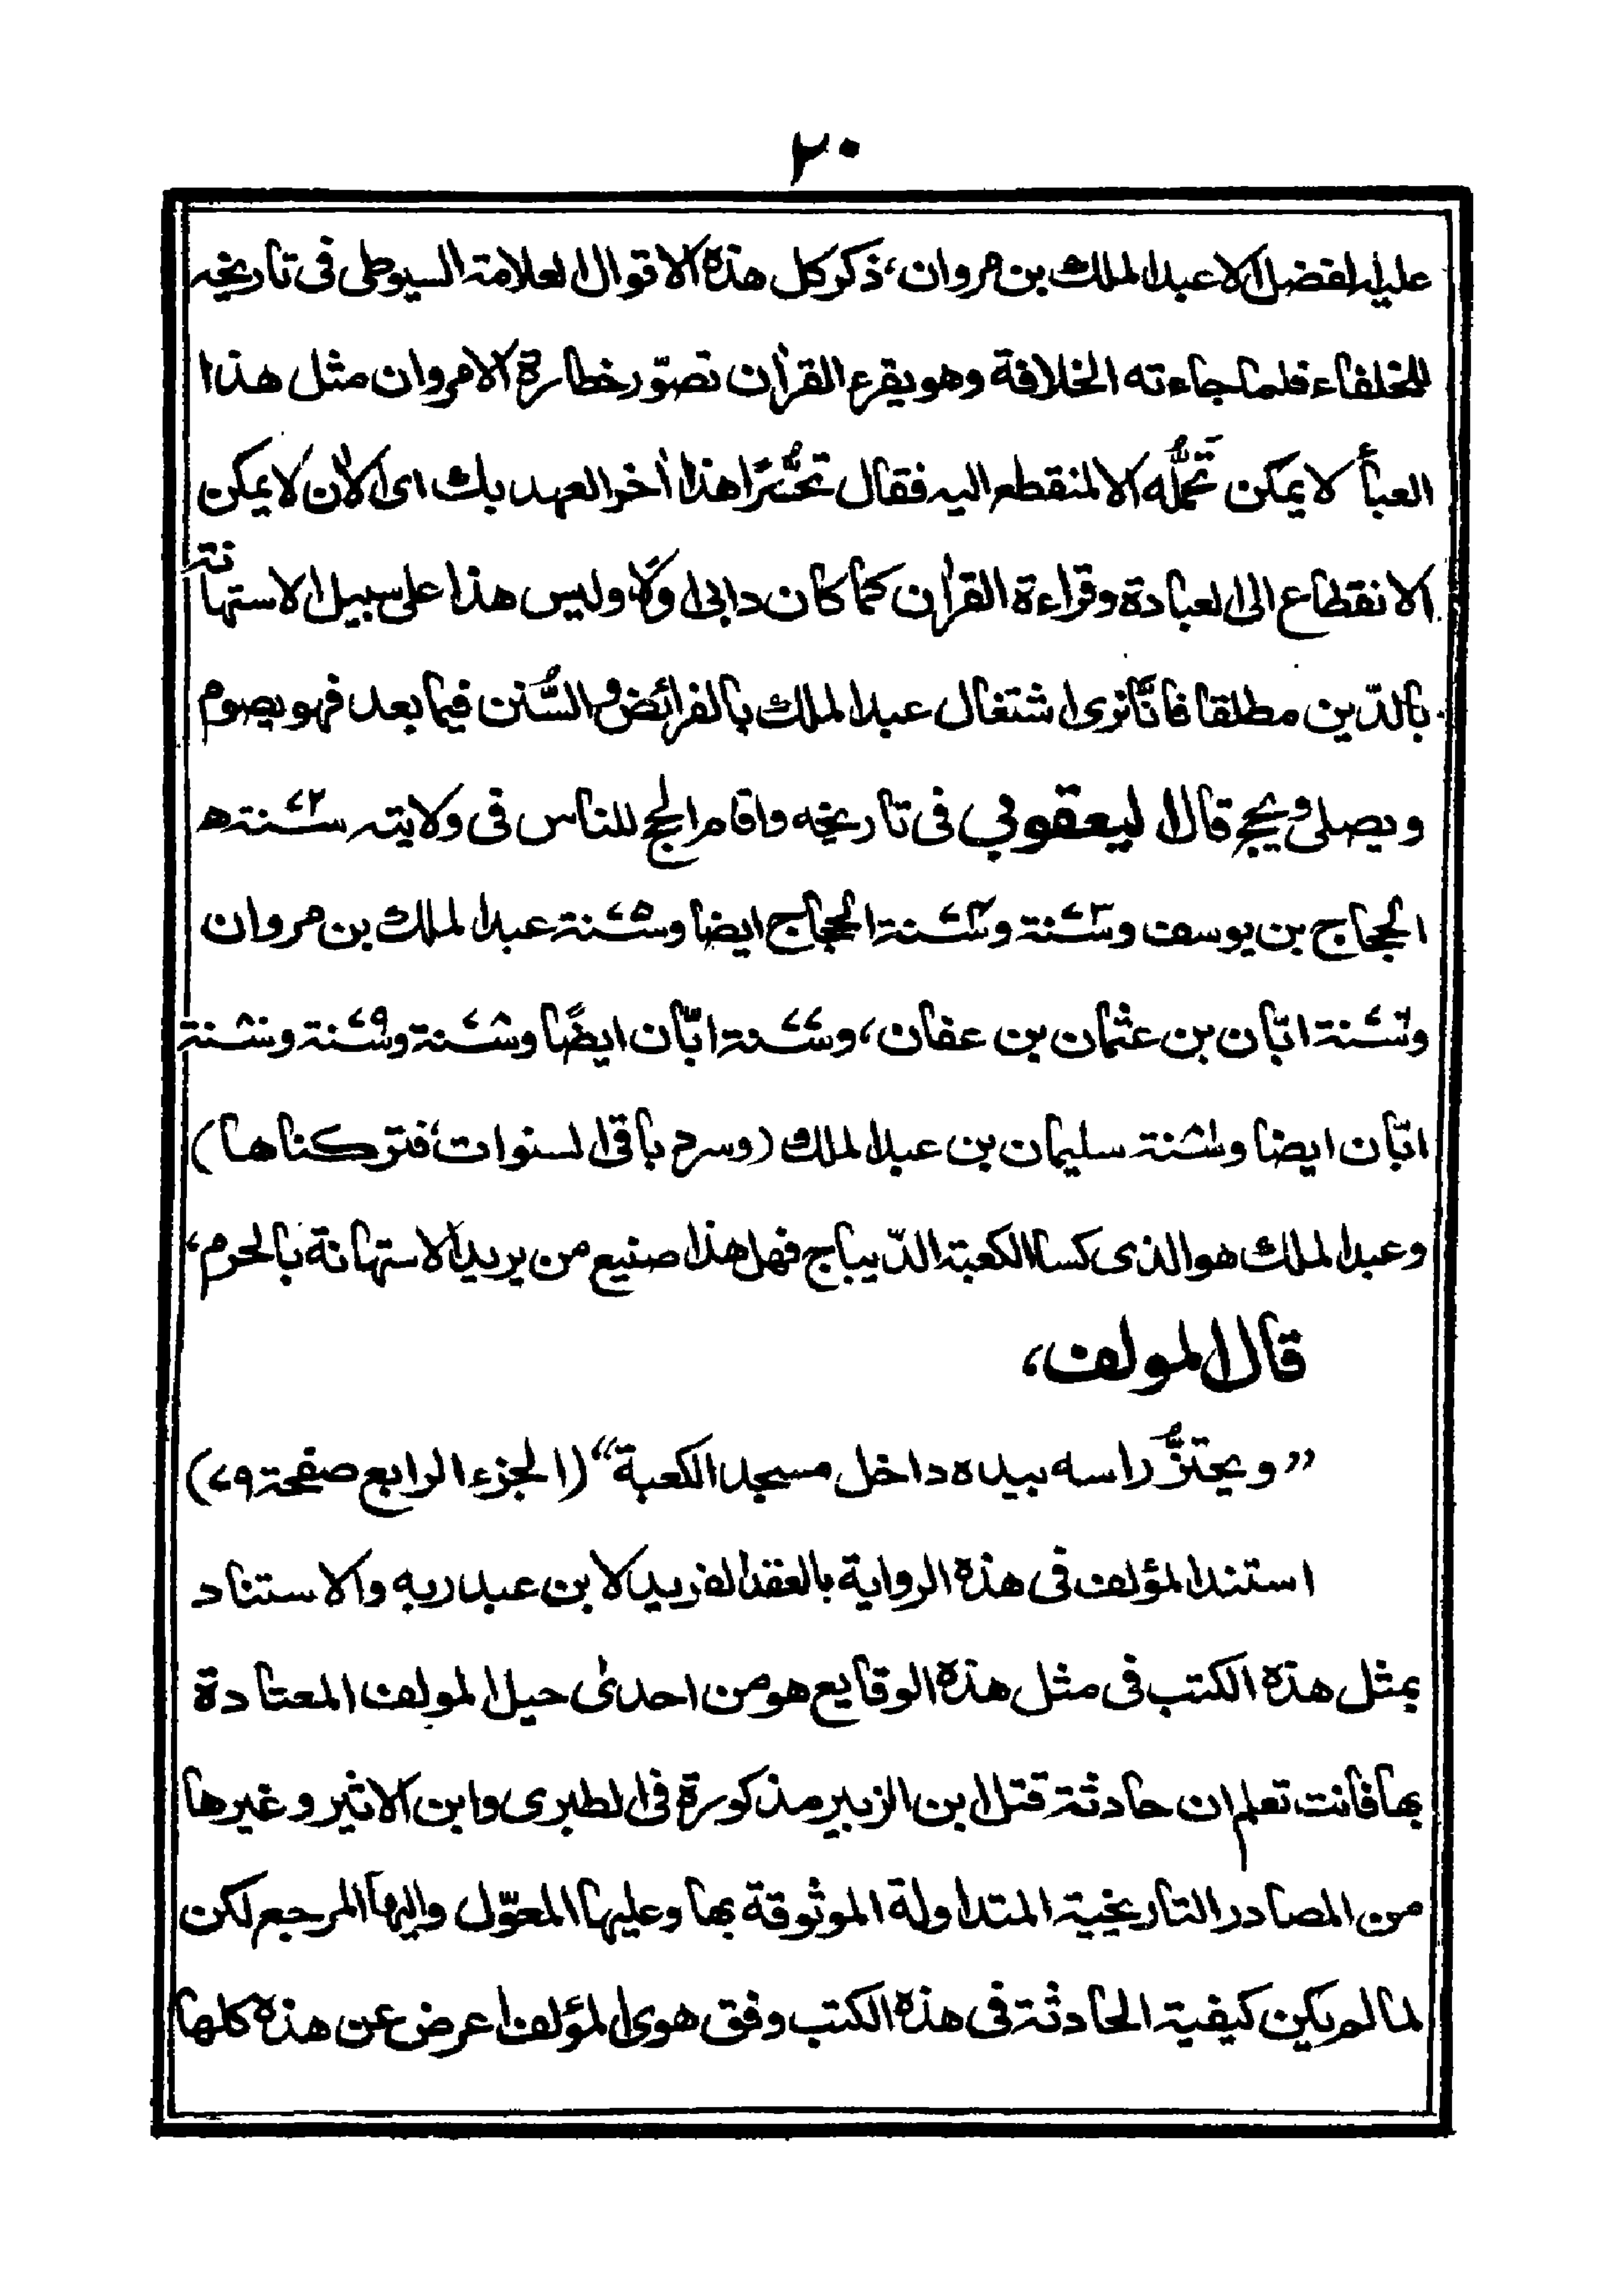 ٢٠
عليه الفضل الا عبد الملك بن مروان، ذكر كل هذه الاقوال العلامة السيوطى فى تاريخه
للخلفاء فلما جاءته الخلافة وهو يقرء القراٰن تصوّر خطارة الامر وان مثل هذا
العبأ لا يمكن تَحمُّله الا لمنقطع اليه فقال تحسُّرًا هذا اٰخر العهد بك اى الاٰن لا يمكن
الانقطاع الى العبادة وقراءة القراٰن كما كان دابى اولًا وليس هذا على سبيل الاستهانة
بالدّين مطلقا فانَّا نرى اشتغال عبد الملك بالفرائض والسُّنن فيما بعد فهو يصوم
ويصلى ويحج قال اليعقوبي فى تاريخه واقام الحج للناس فى ولايته سنة ٧٢ھ
الحجاج بن يوسف وسنة ٧٣ وسنة ٧٤ الحجاج ايضا وسنة ٧٥ عبد الملك بن مروان
وسنة ٧٦ ابّان بن عثمان بن عفان، وسنة ٧٧ ابّان ايضًا وسنة ٧٨ وسنة ٧٩ وسنة ٨٠
ابّان ايضا وسنة ٨١ سليمان بن عبد الملك (وسرد باقى السنوات، فتركناها)
وعبد الملك هو الذى كسا الكعبة الدّيباج فهل هذا صنيع من يريد الاستهانة بالحرم،
قال المولف،
”ويحتزُّ راسه بيده داخل مسجد الكعبة“ (الجزء الرابع صفحة ٧٩)
استند المؤلف فى هذه الرواية بالعقد الفريد لابن عبد ربه والاستناد
بمثل هذه الكتب فى مثل هذه الوقايع هو من احدىٰ حيل المولف المعتادة
بها فانت تعلم ان حادثة قتل ابن الزبير مذكورة فى الطبرى وابن الاثير وغيرها
من المصادر التاريخية المتداولة الموثوقة بها وعليها المعوّل واليها المرجع لكن
لما لم يكن كيفية الحادثة فى هذه الكتب وفق هوى المؤلف اعرض عن هذه كلها